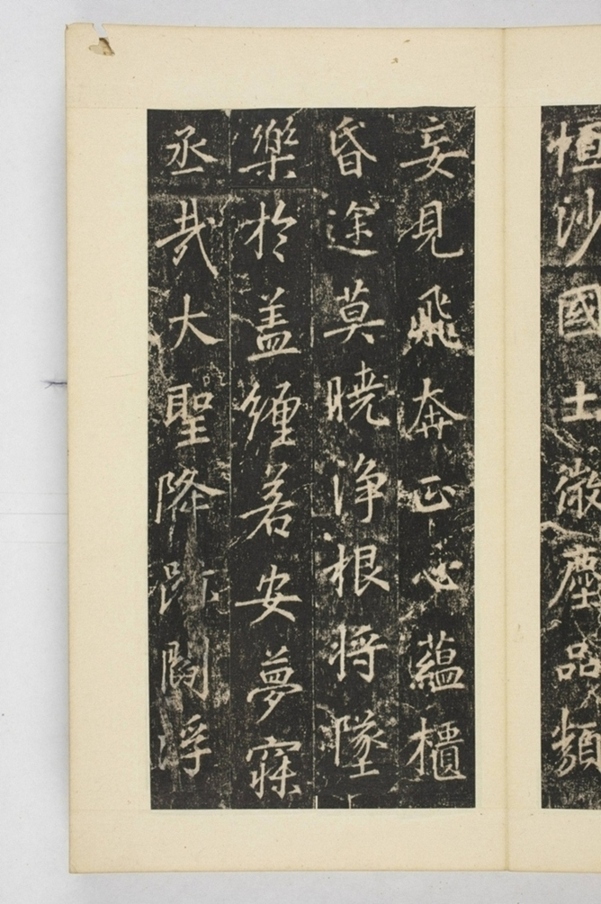 恒沙國土微塵品類
妄見飛奔正心蘊櫃
昏途莫曉浄根将墜
樂於盖纏若安夢寐
丞哉大聖降跡閻浮